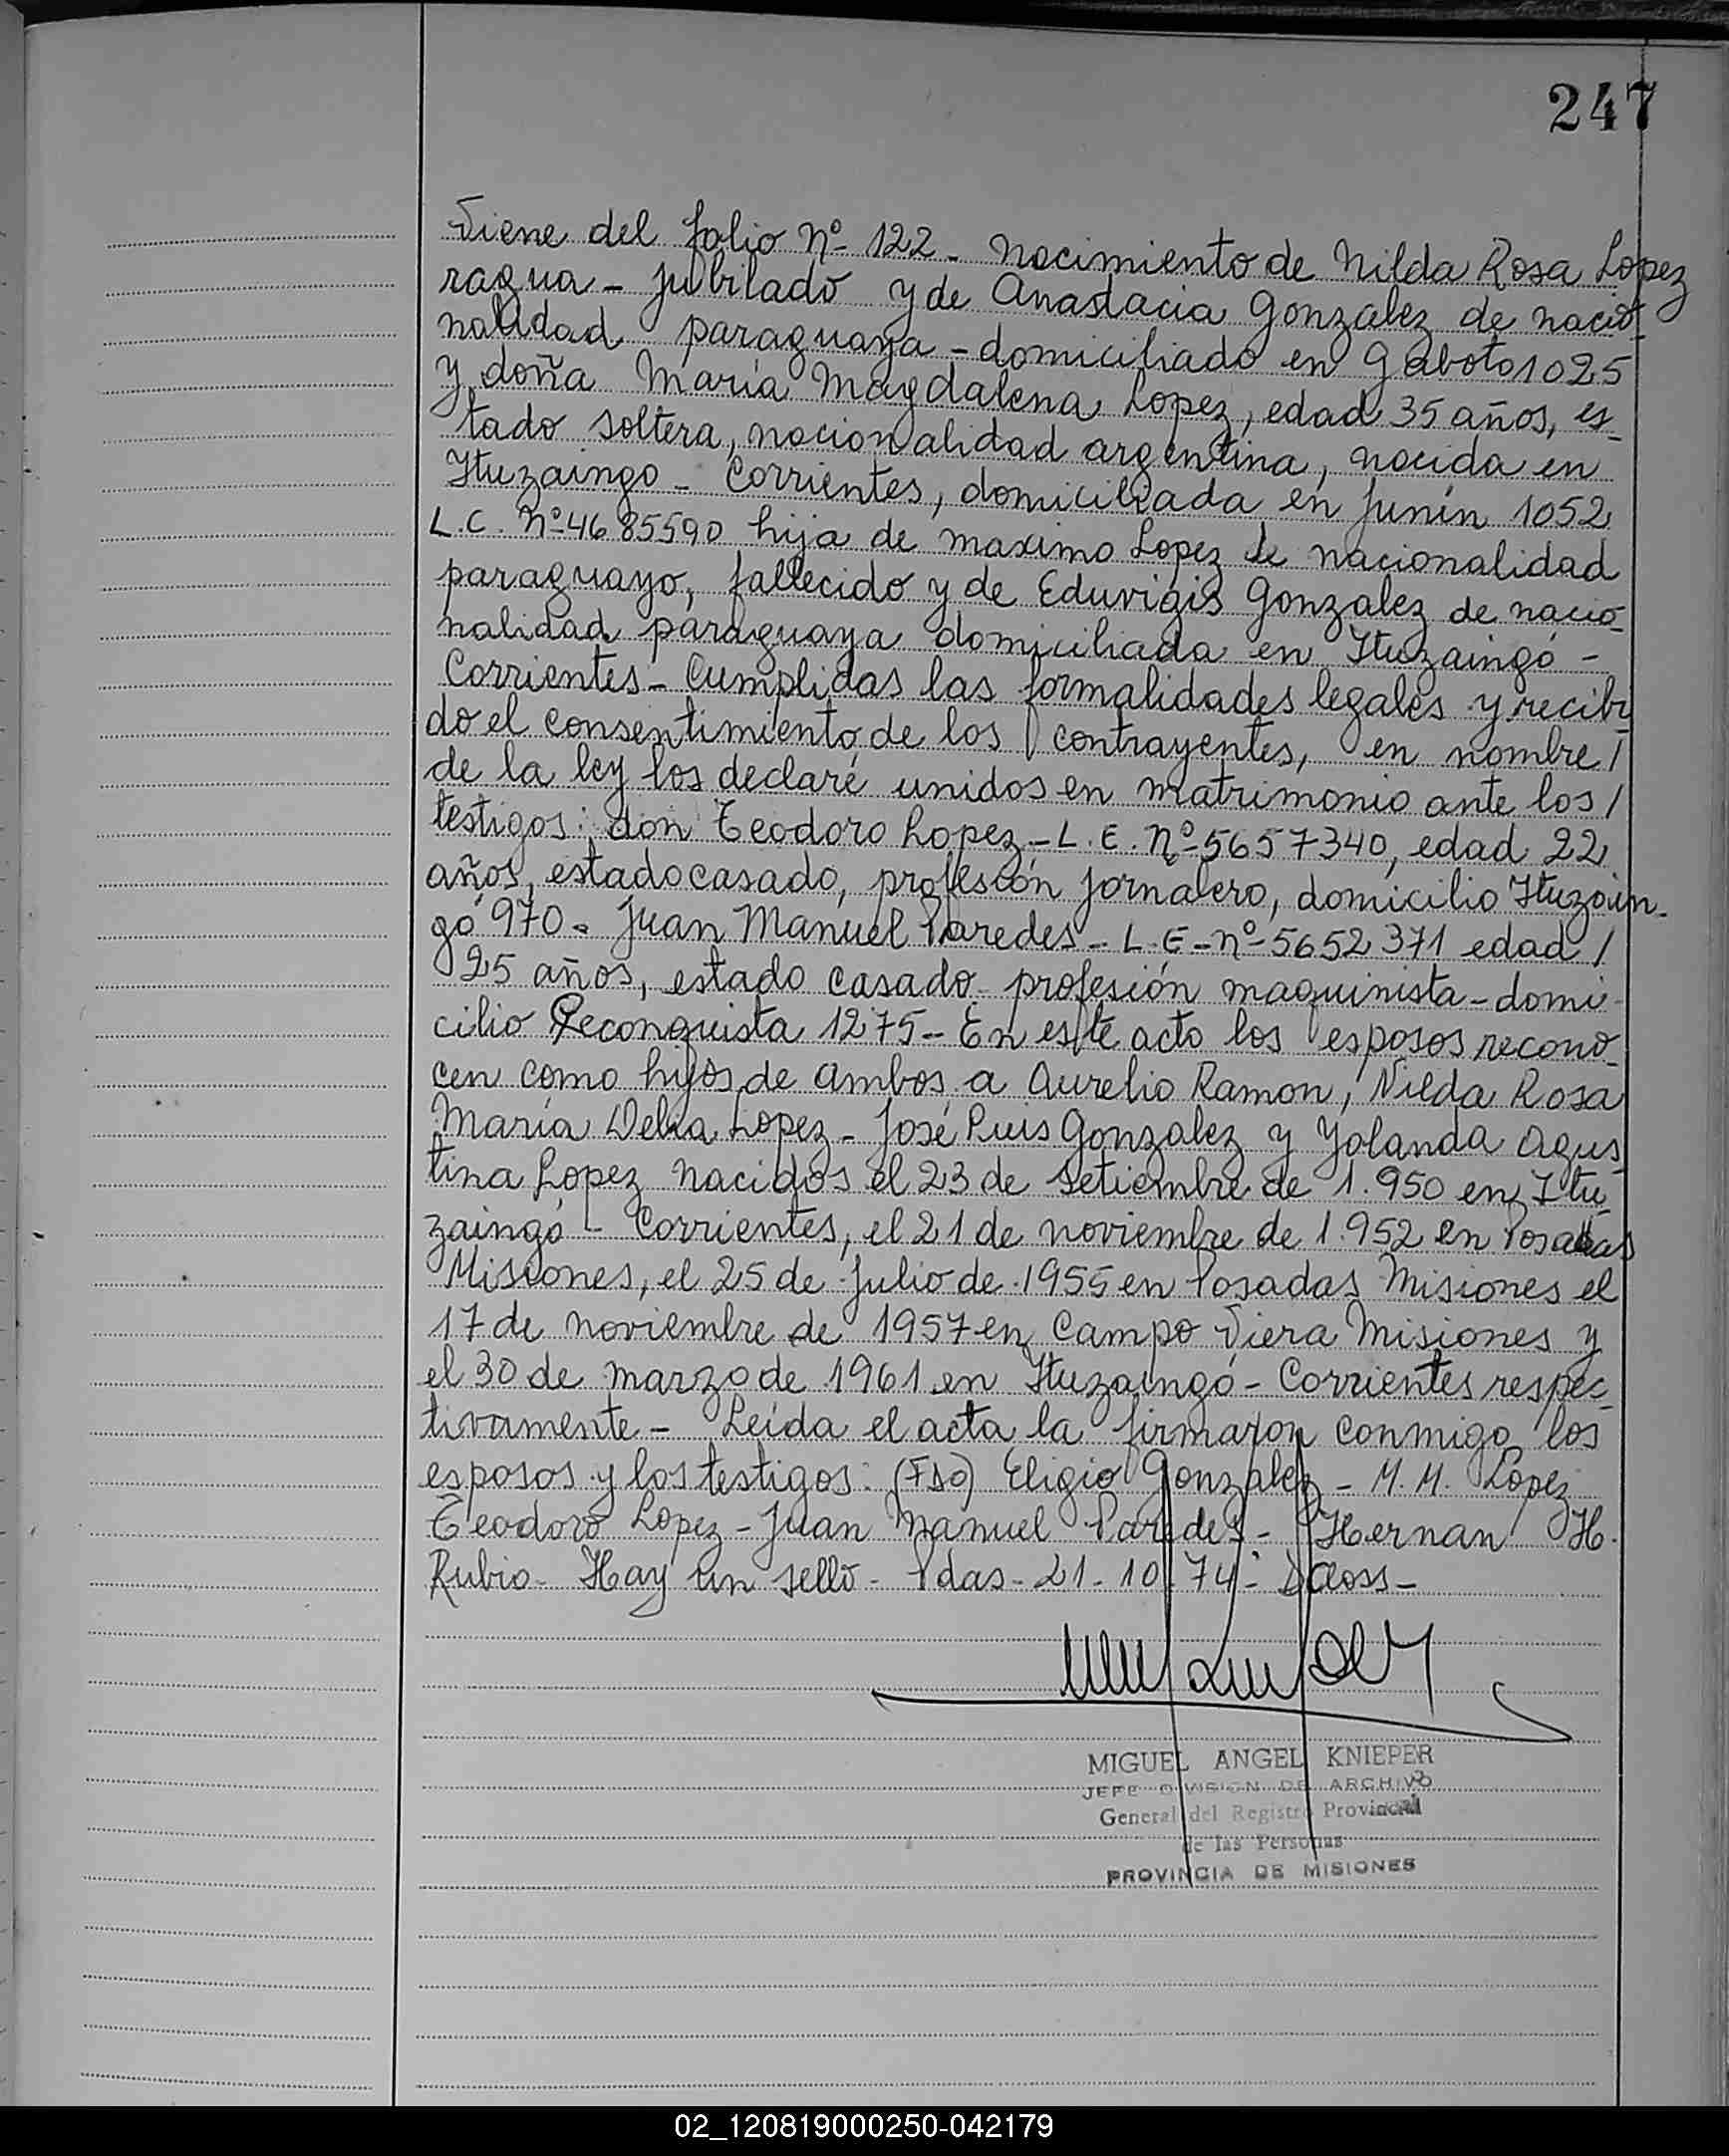 247
Viene del folio Nº 122 - Nacimiento de Nilda Rosa Lopez
ragua - jubilado y de Anastacia Gonzalez de nacio-
nalidad paraguaya - domiciliado en Gaboto 1025
y doña María Magdalena Lopez, edad 35 años, es-
tado soltera, nacionalidad argentina, nacida en
Ituzaingo - Corrientes, domiciliada en Junín 1052
L.C. Nº 4685590 hija de Maximo Lopez de nacionalidad
paraguayo, fallecido y de Eduvigis Gonzalez de nacio-
nalidad paraguaya domiciliada en Ituzaingó -
Corrientes - Cumplidas las formalidades legales y recibi
do el consentimiento de los contrayentes, en nombre /
de la ley los declaré unidos en matrimonio ante los /
testigos: don Teodoro Lopez - L.E. Nº 5657340, edad 22
años, estado casado, profesión jornalero, domicilio Ituzain-
gó 970 - Juan Manuel Paredes - L.E - Nº 5652371 edad /
25 años, estado casado - profesión maquinista - domi-
cilio Reconquista 1275 - En este acto los esposos recono-
cen como hijos de ambos a Aurelio Ramon, Nilda Rosa
María Delia Lopez - José Luis Gonzalez y Yolanda Agus-
tina Lopez nacidos el 23 de setiembre de 1.950 en Itu-
zaingó - Corrientes, el 21 de noviembre de 1.952 en Posadas
Misiones, el 25 de Julio de 1955 en Posadas Misiones el
17 de noviembre de 1957 en Campo Viera Misiones y
el 30 de marzo de 1961 en Ituzaingó - Corrientes respec-
tivamente - Leída el acta la firmaron conmigo los
esposos y los testigos: (Fdo) Eligio Gonzalez - M.M. Lopez
Teodoro Lopez - Juan Manuel Paredes - Hernan H.
Rubio - Hay un sello - Pdas - 21 - 10 - 74 -
MIGUEL ANGEL KNIEPER
JEFE DIVISION DE ARCHIVO
General del Registro Provincial
de las Personas
PROVINCIA DE MISIONES
02_120819000250-042179